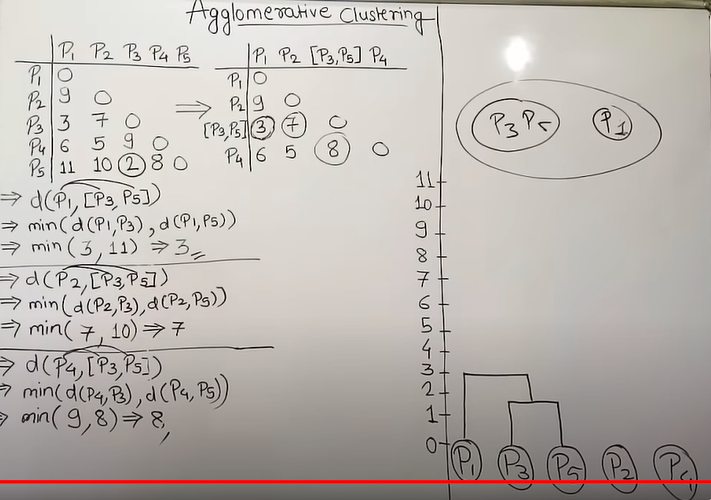 Agglomerative Clustering
P1 P2 P3 P4 P5
P1 0
P2 9 0
P3 3 7 0
P4 6 5 9 0
P5 11 10 2 8 0
⇒
P1 P2 [P3,P5] P4
P1 0
P2 9 0
[P3,P5] 3 7 0
P4 6 5 8 0
⇒ d(P1,[P3,P5])
⇒ min(d(P1,P3),d(P1,P5))
⇒ min(3,11) ⇒ 3
⇒ d(P2,[P3,P5])
⇒ min(d(P2,P3),d(P2,P5)]
⇒ min(7,10) ⇒ 7
⇒ d(P4,[P3,P5])
⇒ min(d(P4,P3),d(P4,P5))
⇒ min(9,8) ⇒ 8,
P3 P5 P1
11
10
9
8
7
6
5
4
3
2
1
0
P1 P3 P5 P2 P4